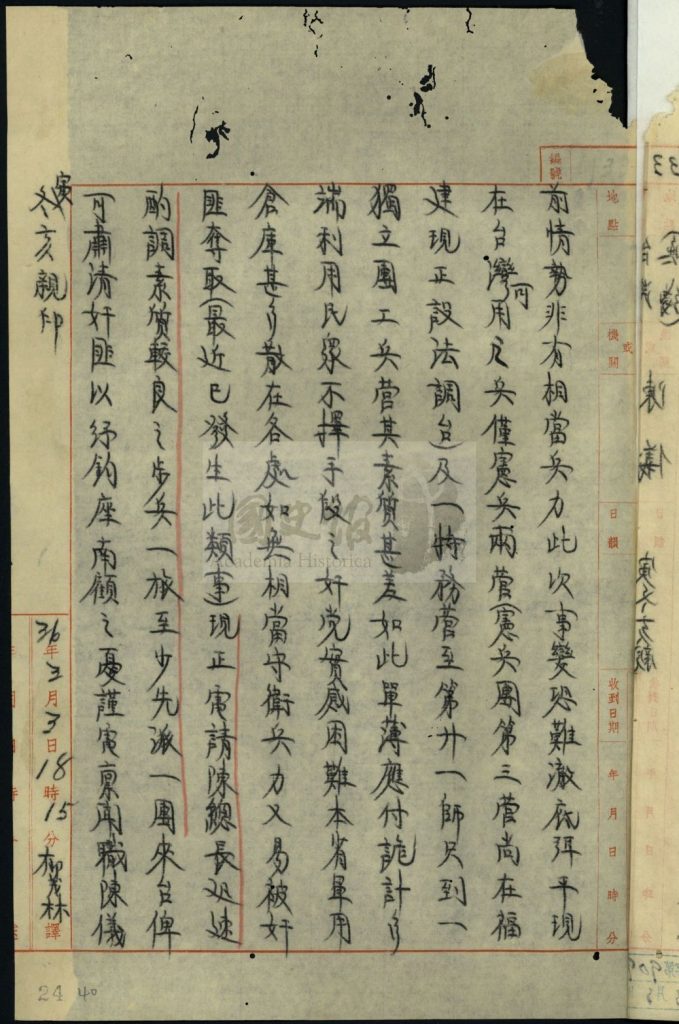 編號
地點
或
機關
日韻
收到日期
年月日時分
前情勢非有相當兵力此次事變恐難澈底弭平現
在台灣可用之兵僅憲兵兩營憲兵團第三營尚在福
建現正設法調台及一特務營至第廿一師只到一
獨立團工兵營其素質甚差如此單薄應付詭計多
端利用民眾不擇手段之奸党實感困難本省軍用
倉庫甚多散在各處如無相當守衛兵力又易被奸
匪奪取(最近已發生此類事)現正電請陳總長迅速
酌調素質較良之步兵一旅至少先派一團來台俾
可肅清奸匪以紓鈞座南顧之憂謹電稟聞職陳儀
寅冬亥親印
36年3月3日18時15分柳茂林譯
24
40
國史館
Academia Historica